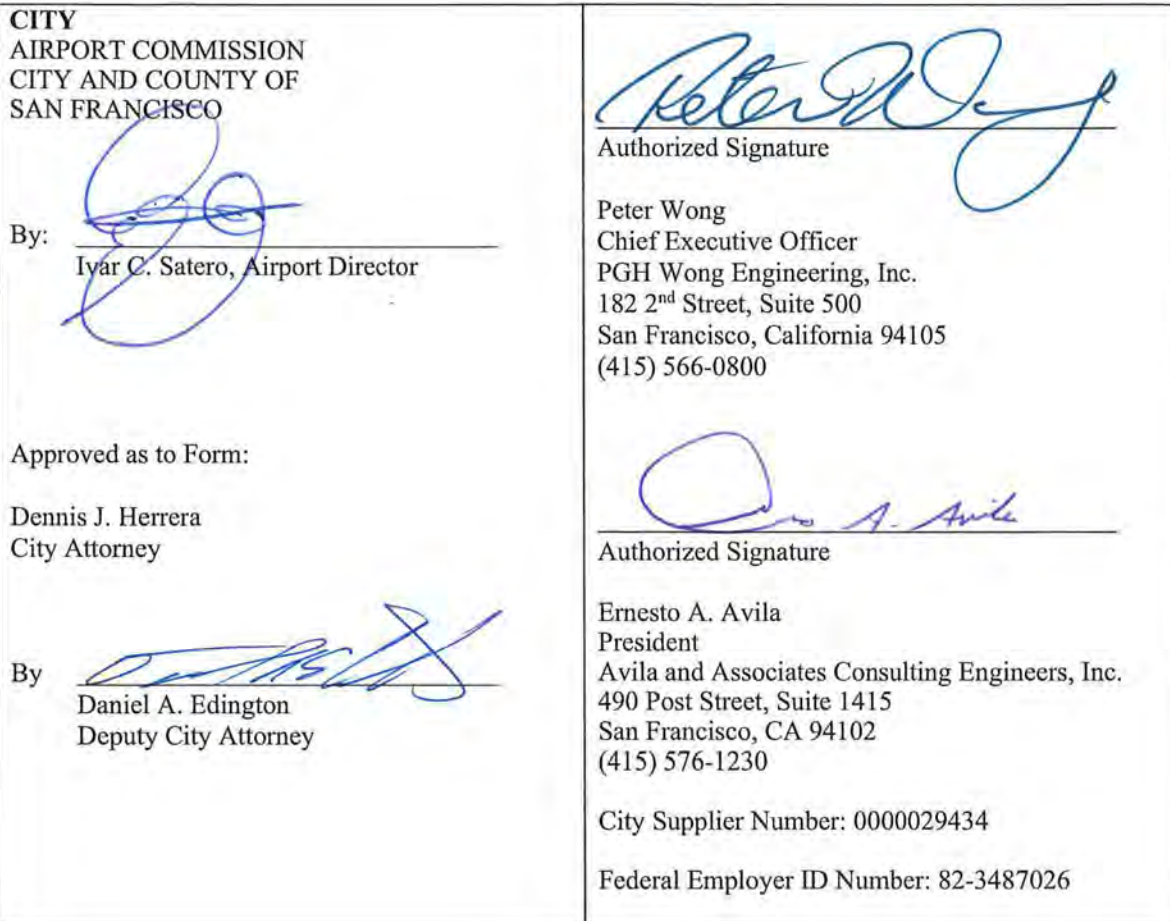 CITY
AIRPORT COMMISSION
CITY AND COUNTY OF
SAN FRANCISCO
By:
Ivar C. Satero, Airport Director
Approved as to Form:
Dennis J. Herrera
City Attorney
By
Daniel A. Edington
Deputy City Attorney
Peter Wong
Authorized Signature
Peter Wong
Chief Executive Officer
PGH Wong Engineering, Inc.
182 2nd Street, Suite 500
San Francisco, California 94105
(415) 566-0800
A. Avila
Authorized Signature
Ernesto A. Avila
President
Avila and Associates Consulting Engineers, Inc.
490 Post Street, Suite 1415
San Francisco, CA 94102
(415) 576-1230
City Supplier Number: 0000029434
Federal Employer ID Number: 82-3487026